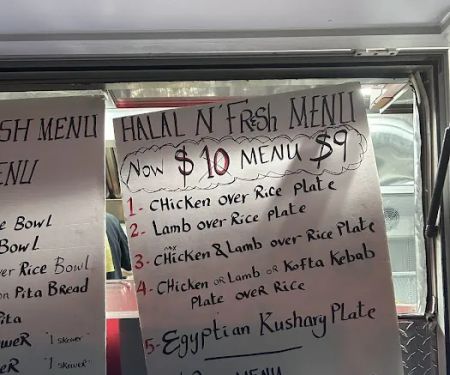 SH MENU
ENU
e Bowl
Bowl
er Rice Bowl
on Pita Bread
Pita
ower "1 skewer
weR "1 skewer
HALAL N' FResh MENU
Now $10 MENU $9
1- Chicken over Rice Plate
2- Lamb over Rice plate
3- Chicken & Lamb over Rice Plate
4- Chicken or Lamb or Kofta Kebab
Plate over Rice
5- Egyptian Kushary Plate
MENU